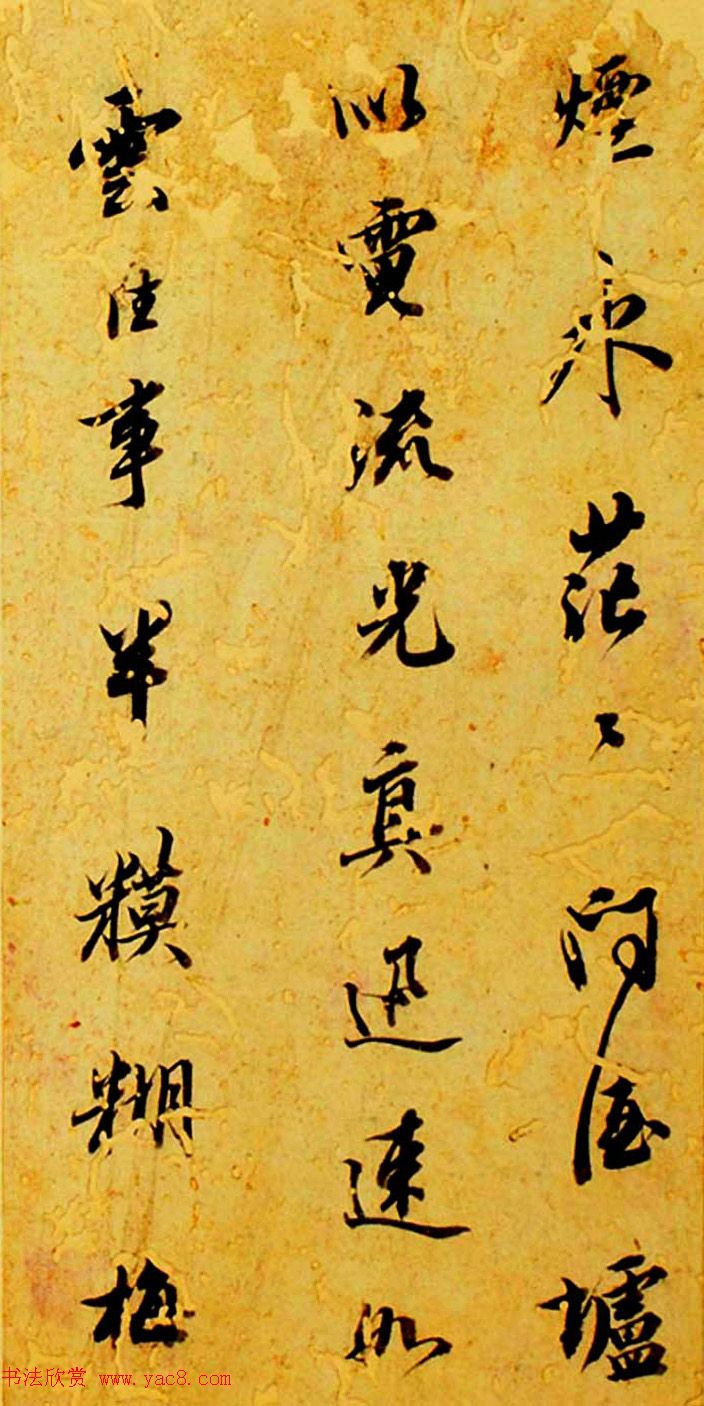 煙水茫々問酒壚
似電流光真迅速如
雲往事半糢糊梅
书法欣赏 www.yac8.com